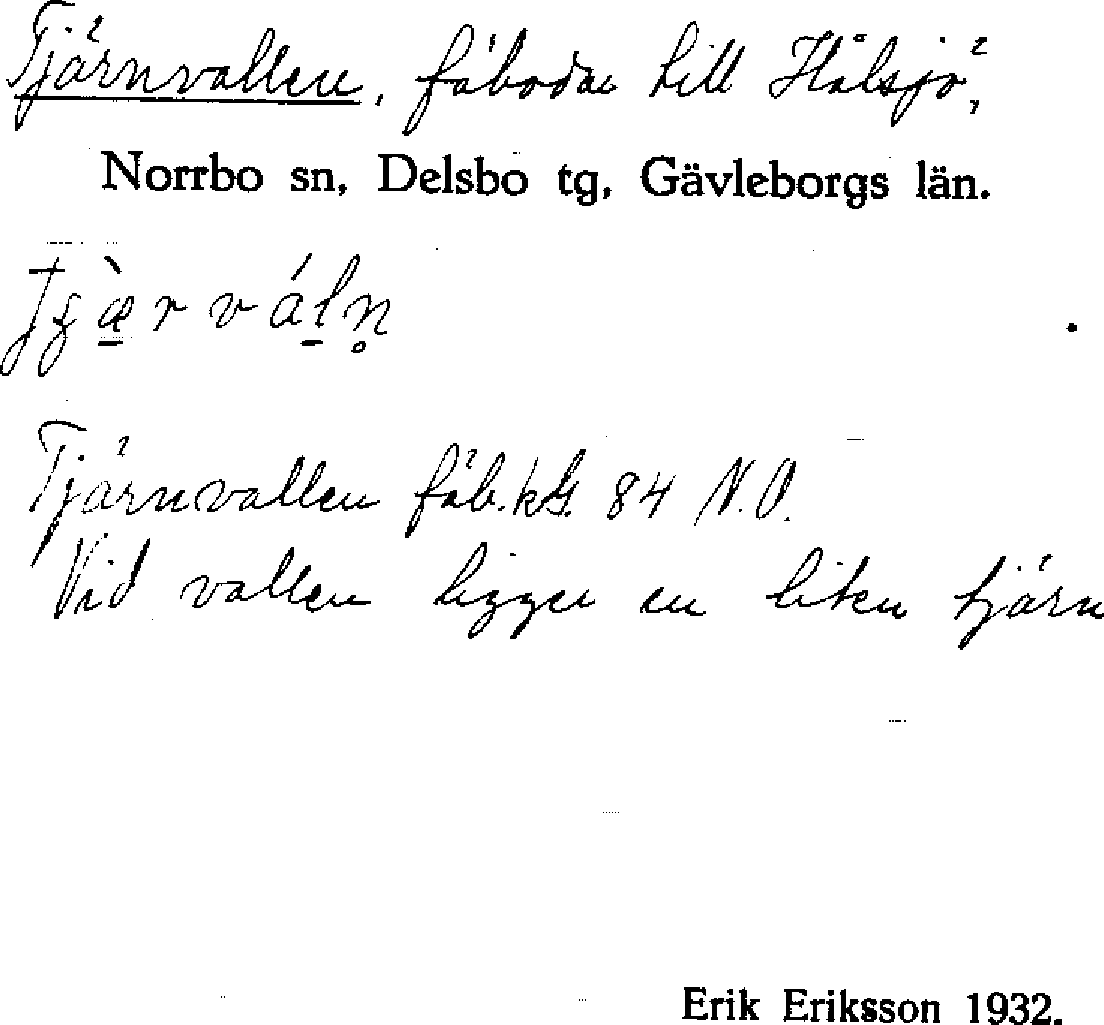 Tjärnvallen, fäbodar till Hålsjö,
Norrbo sn, Delsbo tg, Gävleborgs län.
Tjärnvallen fäb. k bl. 84 N.O.
Vid vallen ligger en liten tjärn
Erik Eriksson 1932.